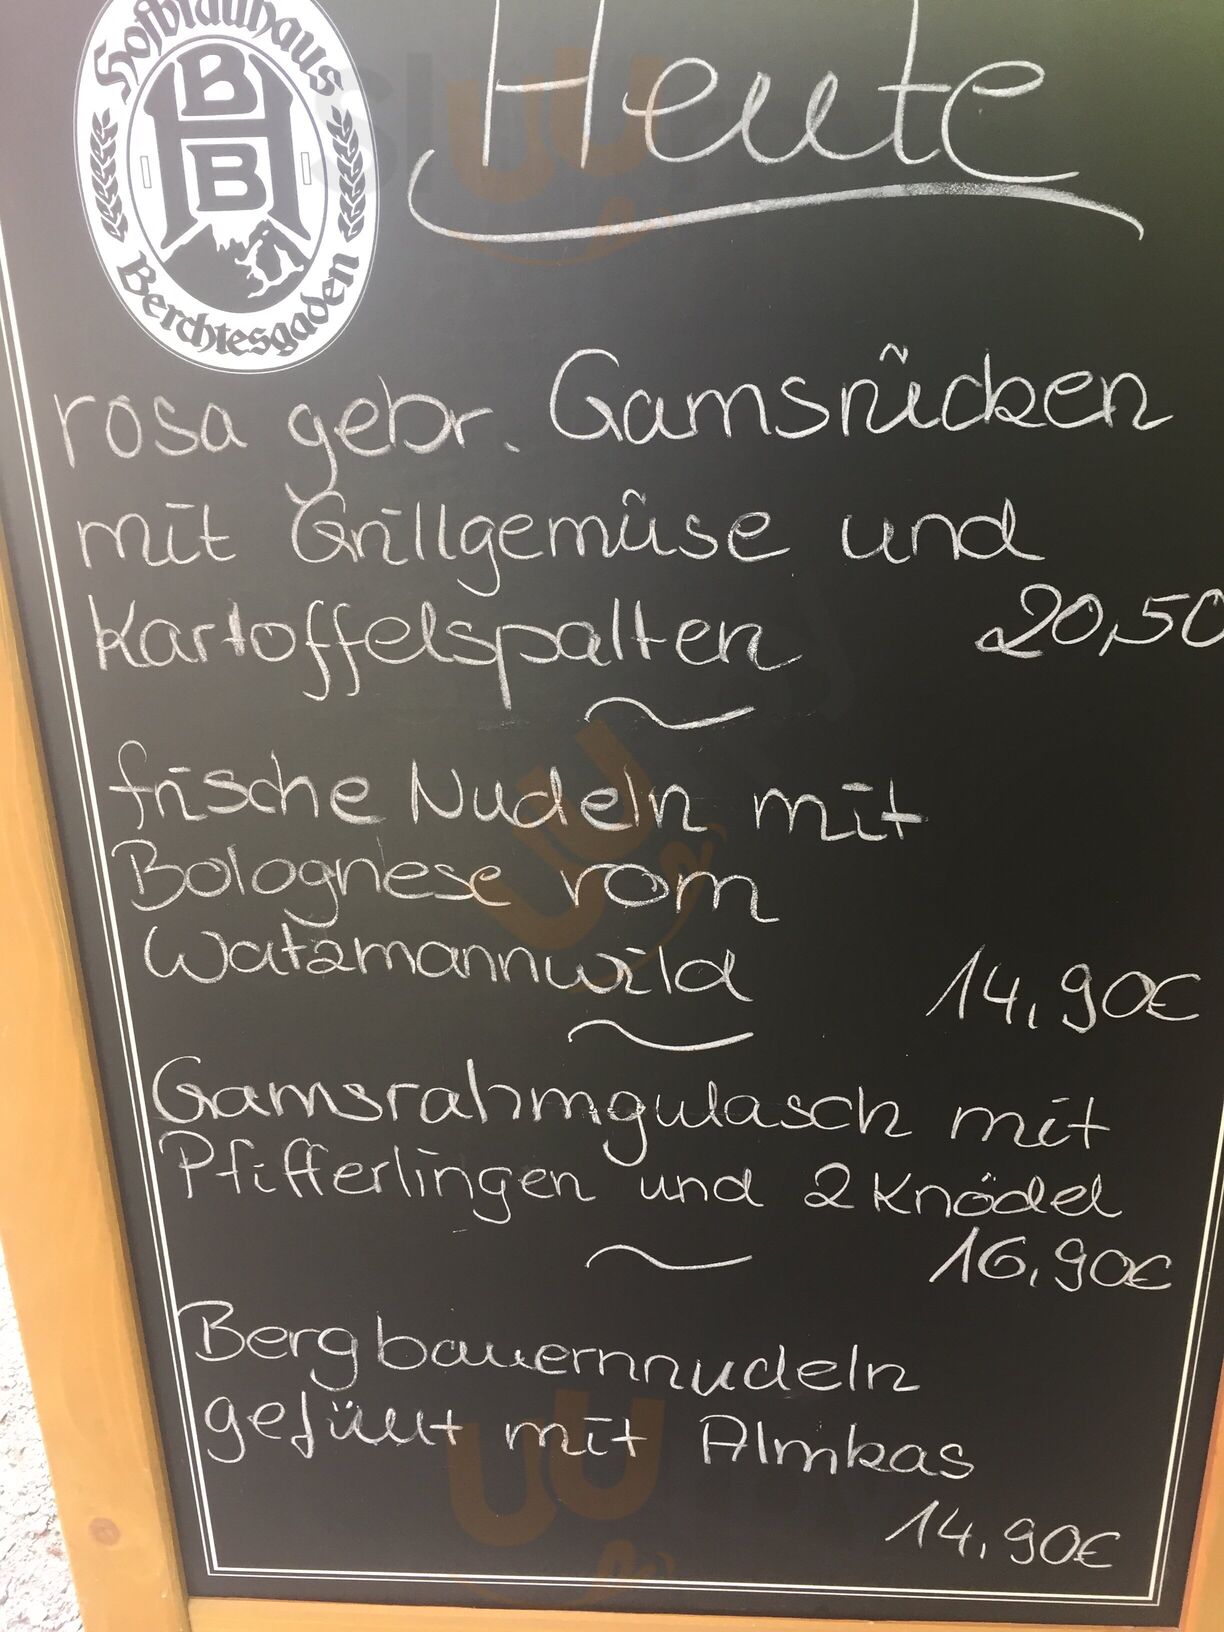 Hofbräuhaus
BHB
Berchtesgaden
Heute
rosa gebr. Gamsrücken
mit Grillgemüse und
Kartoffelspalten 20,50
frische Nudeln mit
Bolognese vom
Watzmannwild 14,90€
Gamsrahmgulasch mit
Pfifferlingen und 2 Knödel
16,90€
Bergbauernnudeln
gefüllt mit Almkas
14,90€